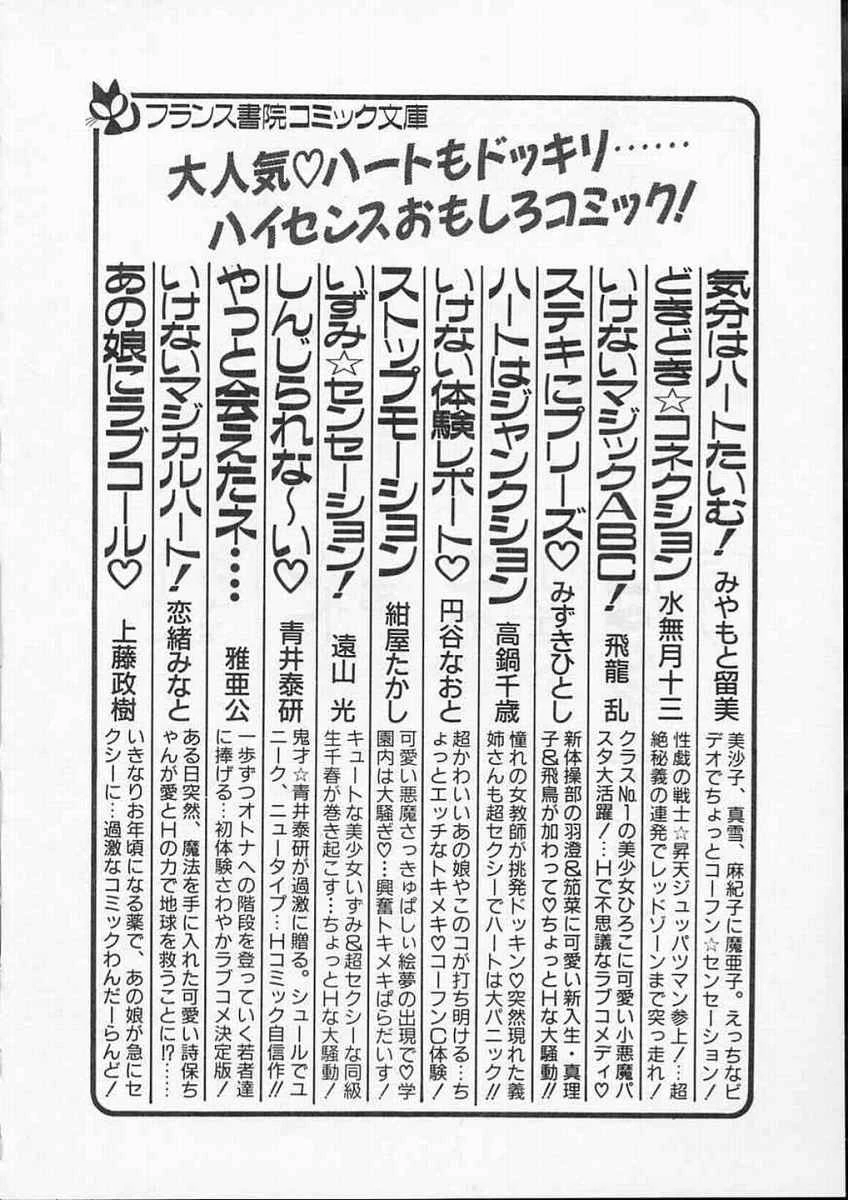 フランス書院コミック文庫
大人気♡ハートもドッキリ……
ハイセンスおもしろコミック!
気分はハートたいむ! みやもと留美
美沙子、真雪、麻紀子に魔亜子。えっちなビ
デオでちょっとコーフン☆センセーション!
どきどき☆コネクション 水無月十三
性戯の戦士☆昇天ジュッパツマン参上!…超
絶秘義の連発でレッドゾーンまで突っ走れ!
いけないマジックABC! 飛龍 乱
クラス№1の美少女ひろこに可愛い小悪魔パ
スタ大活躍!…Hで不思議なラブコメディ♡
ステキにプリーズ♡ みずきひとし
新体操部の羽澄&茄菜に可愛い新入生・真理
子&飛鳥が加わって♡ちょっとHな大騒動!!
ハートはジャンクション 高鍋千歳
憧れの女教師が挑発ドッキン♡突然現れた義
姉さんも超セクシーでハートは大パニック!!
いけない体験レポート♡ 円谷なおと
超かわいいあの娘やこのコが打ち明ける…ち
ょっとエッチなトキメキ♡コーフンC体験!
ストップモーション 紺屋たかし
可愛い悪魔さっきゅばしぃ絵夢の出現で♡学
園内は大騒ぎ♡…興奮トキメキぱらだいす!
いずみ☆センセーション! 遠山 光
キュートな美少女いずみ&超セクシーな同級
生千春が巻き起こす…ちょっとHな大騒動!
しんじられな〜い♡ 青井泰研
鬼才☆青井泰研が過激に贈る。シュールでユ
ニーク、ニュータイプ…Hコミック自信作!!
やっと会えたネ…… 雅亜公
一歩ずつオトナへの階段を登っていく若者達
に捧げる…初体験さわやかラブコメ決定版!
いけないマジカルハート! 恋緒みなと
ある日突然、魔法を手に入れた可愛い詩保ち
ゃんが愛とHの力で地球を救うことに!?……
あの娘にラブコール♡ 上藤政樹
いきなりお年頃になる薬で、あの娘が急にセ
クシーに…過激なコミックわんだーらんど!